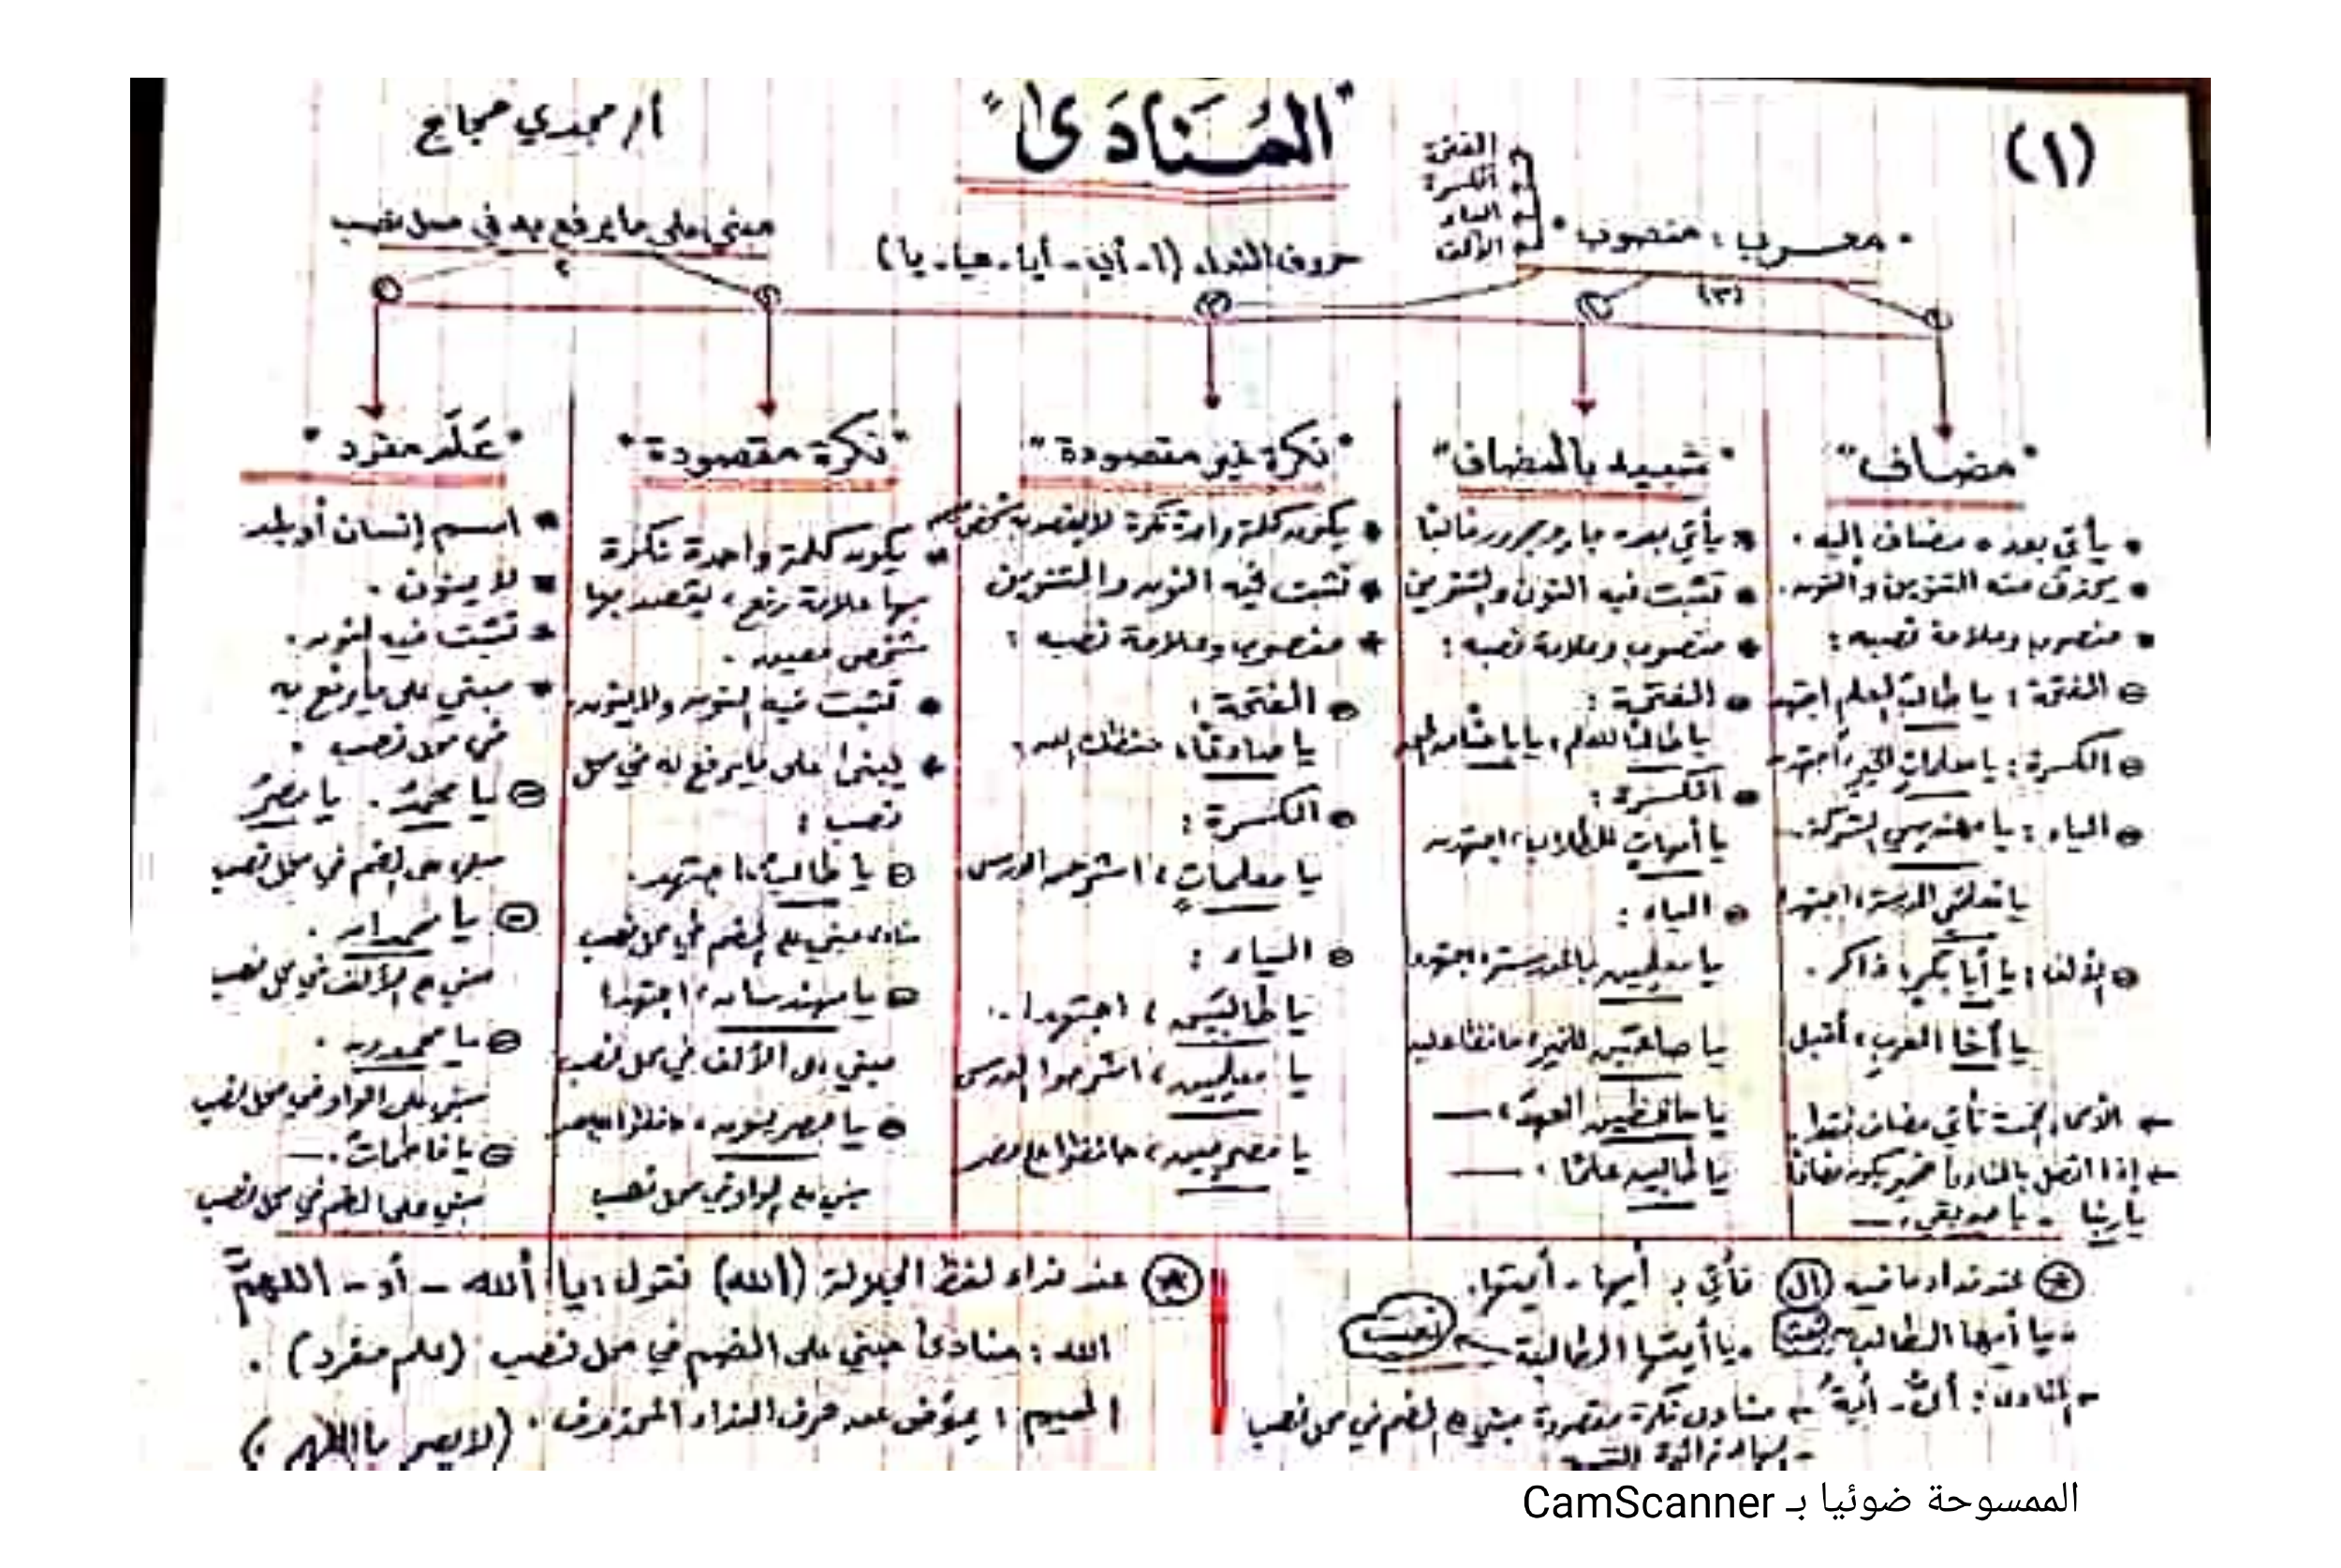 (١)
"المُنَادَى"
أ/ مجدي حجاج
• معرب: منصوب •
الفتحة
الكسرة
الياء
الألف
(٣)
حروف النداء (أ - أي - أيا - هيا - يا)
مبني على ما يرفع به في محل نصب
٢
"مضاف"
• يأتي بعده مضاف إليه.
• يحذف منه التنوين والنون.
• منصوب وعلامة نصبه:
الفتحة: يا طالبَ العلم اجتهد
الكسرة: يا معلماتِ الخير، اجتهدن
الياء: يا مهندسي الشركة
يا معلمَي المدرسة، اجتهدا
الألف: يا أبا بكر، ذاكر.
يا أخا العرب، أقبل
← الأسماء الخمسة تأتي مضاف فقط.
← إذا اتصل بالمنادى ضمير يكون مضافًا
يا ربنا - يا صديقي، ــ
"شبيه بالمضاف"
• يأتي بعده جار ومجرور غالبًا
• تثبت فيه النون والتنوين
• منصوب وعلامة نصبه:
• الفتحة:
يا طالبًا للعلم، يا باحثًا
• الكسرة:
يا أمهاتٍ للطلاب، اجتهدن
• الياء:
يا معلمين بالمدرسة، اجتهدوا
يا صانعَين للخير، حافظا عليه
يا حافظين العهد، ــ
يا طالبين علمًا، ــ
"نكرة غير مقصودة"
• يكون كلمة واحدة نكرة لا يقصد به شخص
• تثبت فيه النون والتنوين
• منصوب وعلامة نصبه:
الفتحة:
يا صادقًا، حفظك الله
الكسرة:
يا معلماتٍ، اشرحن الدرس.
الياء:
يا طالبَين، اجتهدا.
يا معلمين، اشرحوا الدرس
يا مصريين، حافظوا على مصر
"نكرة مقصودة"
• يكون كلمة واحدة نكرة
بها علامة رفع، يقصد بها
شخص معين.
• تثبت فيه النون ولا ينون.
• يبنى على ما يرفع به في محل
نصب:
يا طالبُ، اجتهد.
منادى مبني على الضم في محل نصب
يا مهندسان، اجتهدا
مبني على الألف في محل نصب
يا مصريون، حافظوا
مبني على الواو في محل نصب
"عَلَم مفرد"
• اسم إنسان أو بلد
• لا ينون.
• تثبت فيه النون.
• مبني على ما يرفع به
في محل نصب.
يا محمدُ. يا مصرُ
مبني على الضم في محل نصب
يا محمدان.
مبني على الألف في محل نصب
يا محمدون.
مبني على الواو في محل نصب
يا فاطماتُ. ــ
مبني على الضم في محل نصب
عند نداء ما فيه (ال) نأتي بـ أيها - أيتها.
- يا أيها الطالب نعت - يا أيتها الطالبة ← نعت
← المنادى: أيُّ - أيةُ ← منادى نكرة مقصودة مبني على الضم في محل نصب
عند نداء لفظ الجلالة (الله) نقول: يا ألله - أو - اللهمَّ
الله: منادى مبني على الضم في محل نصب (علم مفرد).
الميم: يعوض عن حرف النداء المحذوف. (لا يصح يا اللهم.)
الممسوحة ضوئيا بـ CamScanner